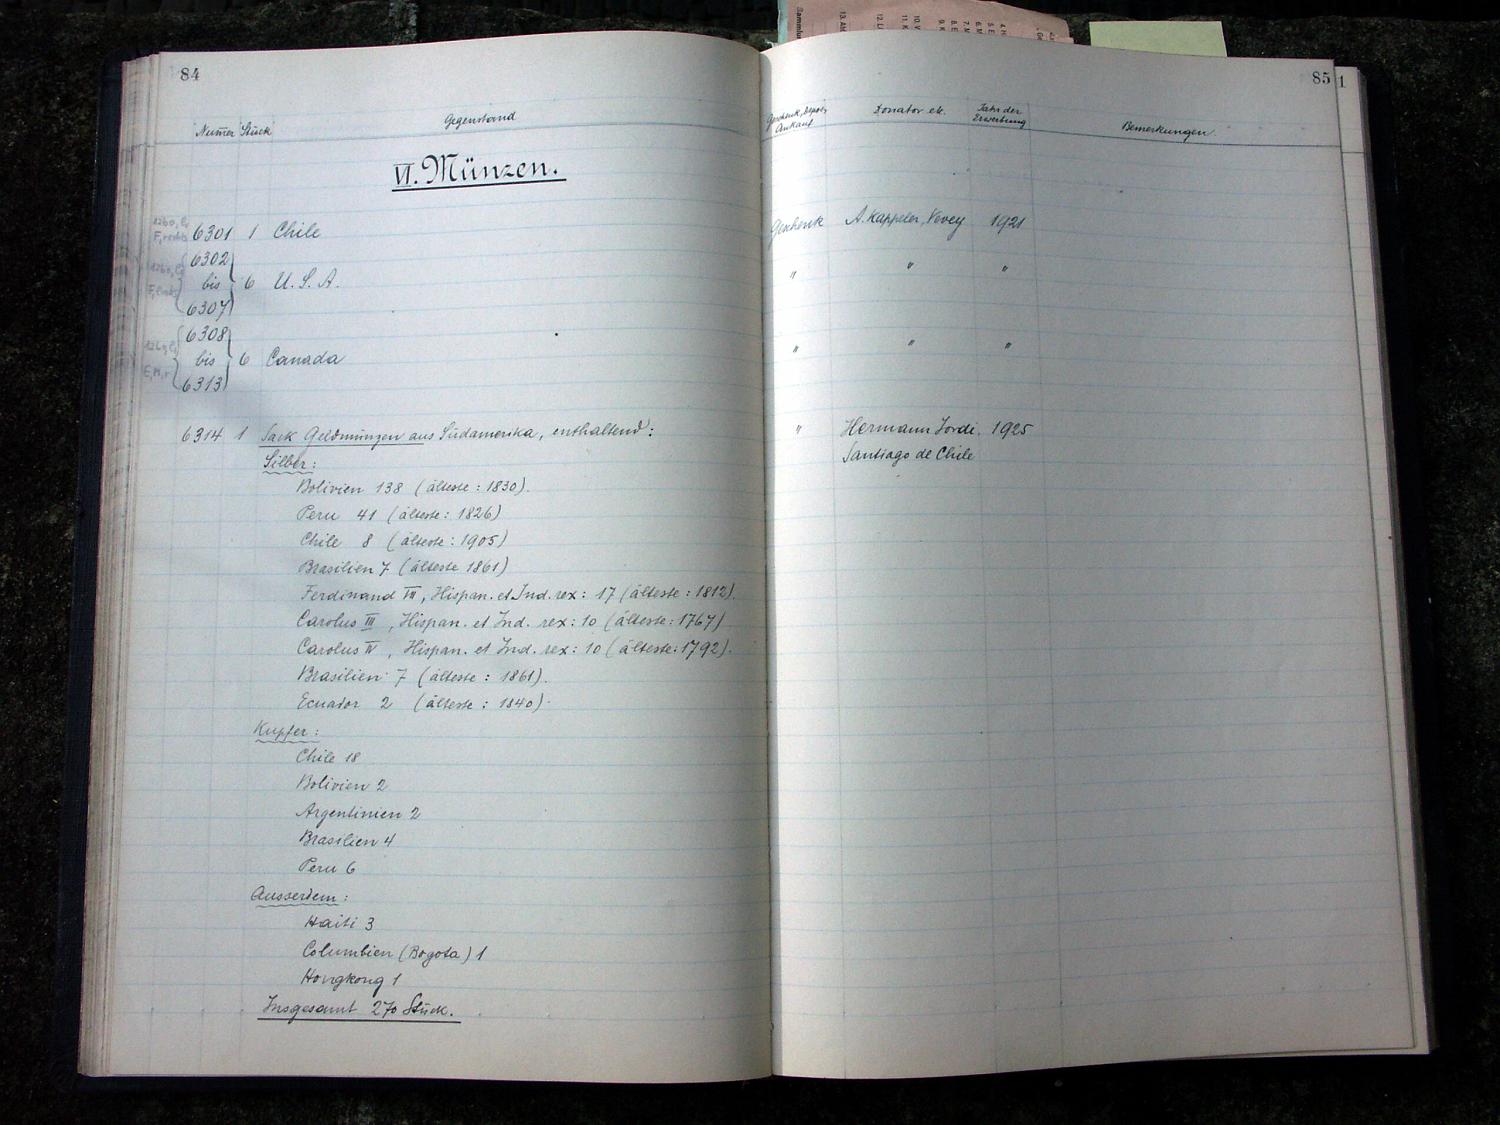 84
Numer Stück Gegenstand
VI. Münzen.
6301 1 Chile
6302
bis 6 U. S. A.
6307
6308
bis 6 Canada
6313
6314 1 Sack Geldmünzen aus Südamerika, enthaltend:
Silber:
Bolivien 138 (älteste: 1830).
Peru 41 (älteste: 1826)
Chile 8 (älteste: 1905)
Brasilien 7 (älteste 1861)
Ferdinand VII, Hispan. et Ind. rex: 17 (älteste: 1812).
Carolus III, Hispan. et Ind. rex: 10 (älteste: 1767)
Carolus IV, Hispan. et Ind. rex: 10 (älteste: 1792).
Brasilien 7 (älteste: 1861).
Ecuador 2 (älteste: 1840).
Kupfer:
Chile 18
Bolivien 2
Argentinien 2
Brasilien 4
Peru 6
Ausserdem:
Haiti 3
Columbien (Bogota) 1
Hongkong 1
Insgesamt 270 Stück.
85
1
Geschenk, Depot, Ankauf
Donator etc.
Jahr der Erwerbung
Bemerkungen
Geschenk A. Kappeler, Vevey 1921
" " "
" " "
" Hermann Jordi, 1925
Santiago de Chile